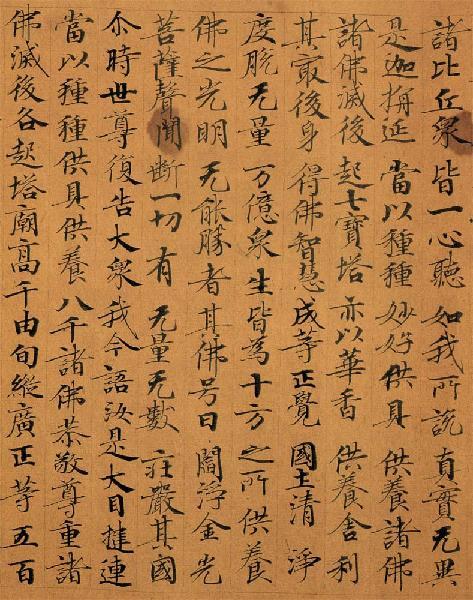 諸比丘衆皆一心聽如我所說真實无異
是迦旃延當以種種妙好供具供養諸佛
諸佛滅後起七寶塔亦以華香供養舍利
其最後身得佛智慧成等正覺國土清淨
度脫无量万億衆生皆為十方之所供養
佛之光明无能勝者其佛号曰閻浮金光
菩薩聲聞斷一切有无量无數莊嚴其國
尒時世尊復告大衆我今語汝是大目揵連
當以種種供具供養八千諸佛恭敬尊重諸
佛滅後各起塔廟高千由旬縱廣正等五百